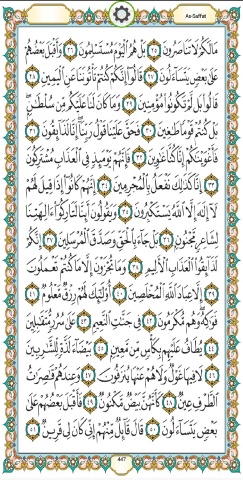 As-Saffat
مَا لَكُمْ لَا تَنَاصَرُونَ ٢٥ بَلْ هُمُ الْيَوْمَ مُسْتَسْلِمُونَ ٢٦ وَأَقْبَلَ بَعْضُهُمْ
عَلَىٰ بَعْضٍ يَتَسَاءَلُونَ ٢٧ قَالُوا إِنَّكُمْ كُنْتُمْ تَأْتُونَنَا عَنِ الْيَمِينِ ٢٨
قَالُوا بَلْ لَمْ تَكُونُوا مُؤْمِنِينَ ٢٩ وَمَا كَانَ لَنَا عَلَيْكُمْ مِنْ سُلْطَانٍ
بَلْ كُنْتُمْ قَوْمًا طَاغِينَ ٣٠ فَحَقَّ عَلَيْنَا قَوْلُ رَبِّنَا إِنَّا لَذَائِقُونَ ٣١
فَأَغْوَيْنَاكُمْ إِنَّا كُنَّا غَاوِينَ ٣٢ فَإِنَّهُمْ يَوْمَئِذٍ فِي الْعَذَابِ مُشْتَرِكُونَ
٣٣ إِنَّا كَذَٰلِكَ نَفْعَلُ بِالْمُجْرِمِينَ ٣٤ إِنَّهُمْ كَانُوا إِذَا قِيلَ لَهُمْ
لَا إِلَٰهَ إِلَّا اللَّهُ يَسْتَكْبِرُونَ ٣٥ وَيَقُولُونَ أَئِنَّا لَتَارِكُو آلِهَتِنَا
لِشَاعِرٍ مَجْنُونٍ ٣٦ بَلْ جَاءَ بِالْحَقِّ وَصَدَّقَ الْمُرْسَلِينَ ٣٧ إِنَّكُمْ
لَذَائِقُو الْعَذَابِ الْأَلِيمِ ٣٨ وَمَا تُجْزَوْنَ إِلَّا مَا كُنْتُمْ تَعْمَلُونَ
٣٩ إِلَّا عِبَادَ اللَّهِ الْمُخْلَصِينَ ٤٠ أُولَٰئِكَ لَهُمْ رِزْقٌ مَعْلُومٌ ٤١
فَوَاكِهُ وَهُمْ مُكْرَمُونَ ٤٢ فِي جَنَّاتِ النَّعِيمِ ٤٣ عَلَىٰ سُرُرٍ مُتَقَابِلِينَ
٤٤ يُطَافُ عَلَيْهِمْ بِكَأْسٍ مِنْ مَعِينٍ ٤٥ بَيْضَاءَ لَذَّةٍ لِلشَّارِبِينَ
٤٦ لَا فِيهَا غَوْلٌ وَلَا هُمْ عَنْهَا يُنْزَفُونَ ٤٧ وَعِنْدَهُمْ قَاصِرَاتُ
الطَّرْفِ عِينٌ ٤٨ كَأَنَّهُنَّ بَيْضٌ مَكْنُونٌ ٤٩ فَأَقْبَلَ بَعْضُهُمْ عَلَىٰ
بَعْضٍ يَتَسَاءَلُونَ ٥٠ قَالَ قَائِلٌ مِنْهُمْ إِنِّي كَانَ لِي قَرِينٌ ٥١
447